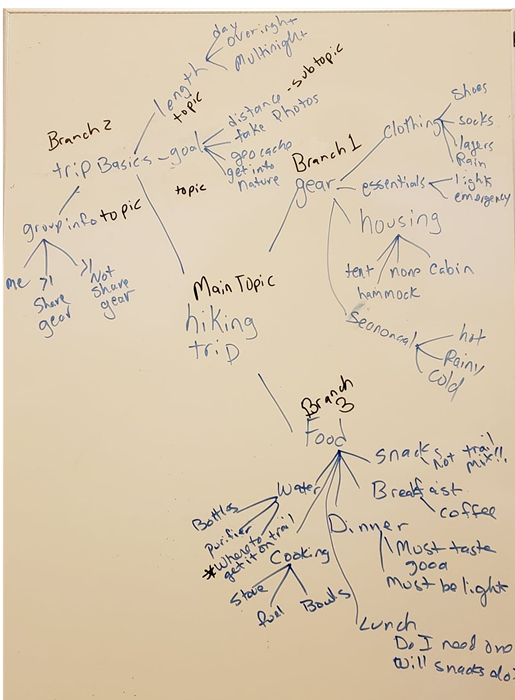 day
overnight
Multinight
length
topic
- subtopic
distance
take Photos
geo cache
get into
nature
goal
topic
Branch 2
trip Basics
group info topic
me
>1
Share
gear
>1
Not
Share
gear
Branch 1
gear
clothing
Shoes
socks
layers
Rain
essentials
light
emergency
housing
tent
none
Cabin
hammock
hot
Rainy
cold
Main Topic
hiking
trip
Branch
3
Food
snacks
Not trail
mix!!
Breakfast
coffee
Water
Bottles
Purifier
*Where to
get it on trail
Dinner
Must taste
good
Must be light
Cooking
Stove
fuel
Bowls
Lunch
Do I need one
Will snacks do?